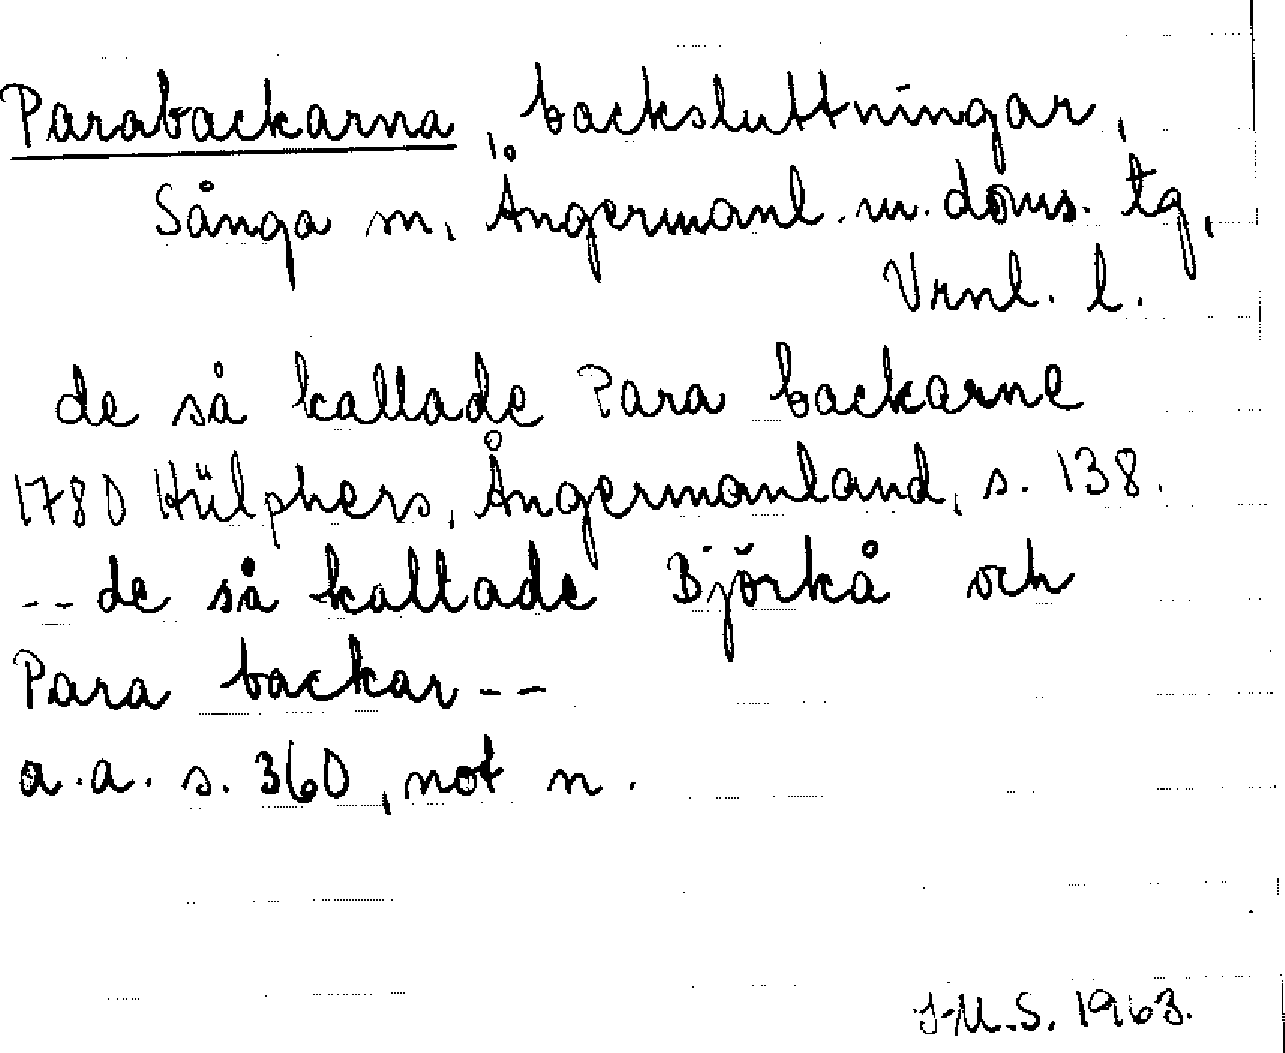 Parabackarna, backsluttningar,
Sånga sn, Ångermanl. m. doms. tg,
Vrnl. l.
de så kallade Para backarne
1780 Hülphers, Ångermanland, s. 138.
-- de så kallade Björkå och
Para backar --
a.a. s. 360, not n.
J-M.S. 1963.